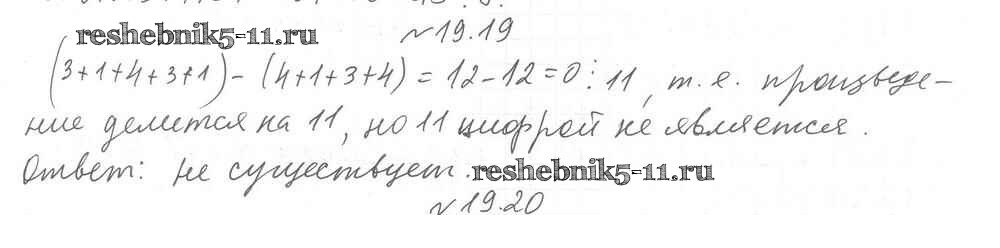 reshebnik5-11.ru
№19.19
(3+1+4+3+1) - (4+1+3+4) = 12-12=0⋮11, т.е. произведе-
ние делится на 11, но 11 цифрой не является.
Ответ: не существует. reshebnik5-11.ru
№19.20